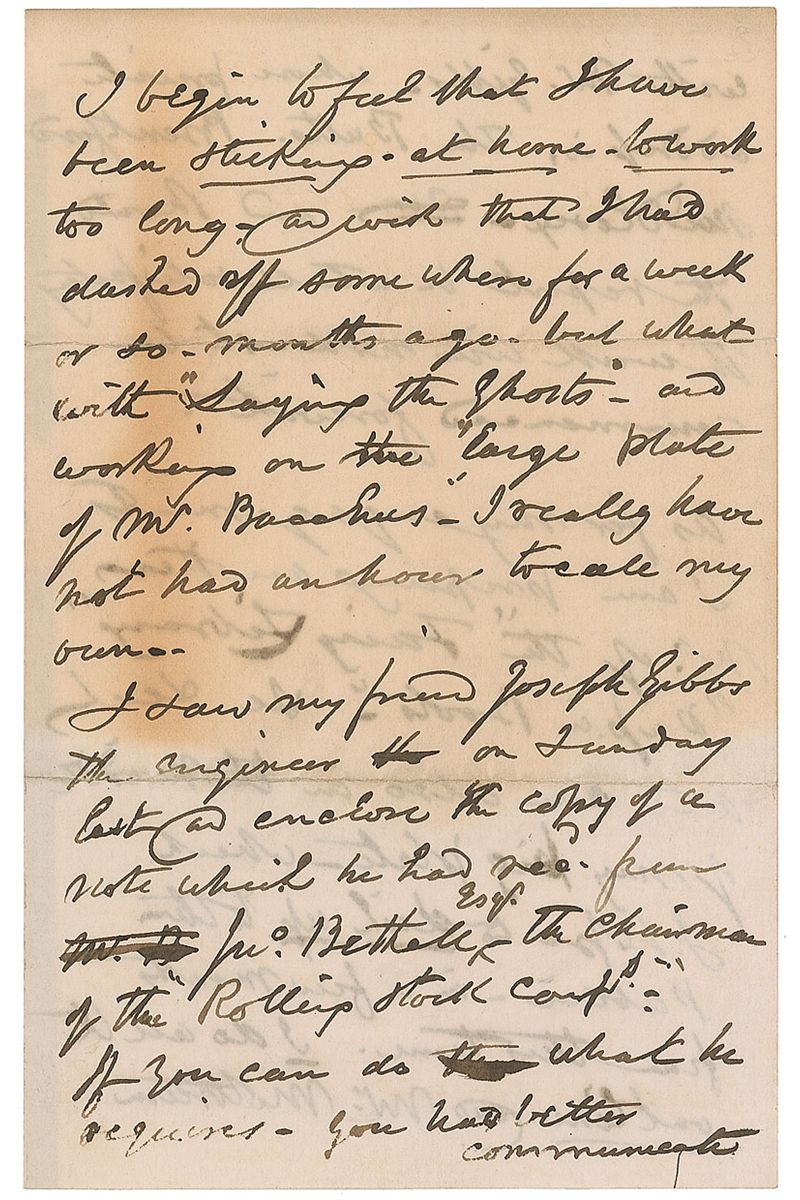 I begin to feel that I have
been sticking - at home - to work
too long - and wish that I had
dashed off some where for a week
or so - months ago - but what
with "Laying the Ghosts" - and
working on the "large plate
of Mr. Bacchus" - I really have
not had an hour to call my
own --
I saw my friend Joseph Gibbs
the engineer on Sunday
last and enclose the copy of a
note which he had rec. from
Jno. Bethell Esqr. - the Chairman
of the "Rolling Stock Compy" -
If you can do what he
requires - you had better
communicate